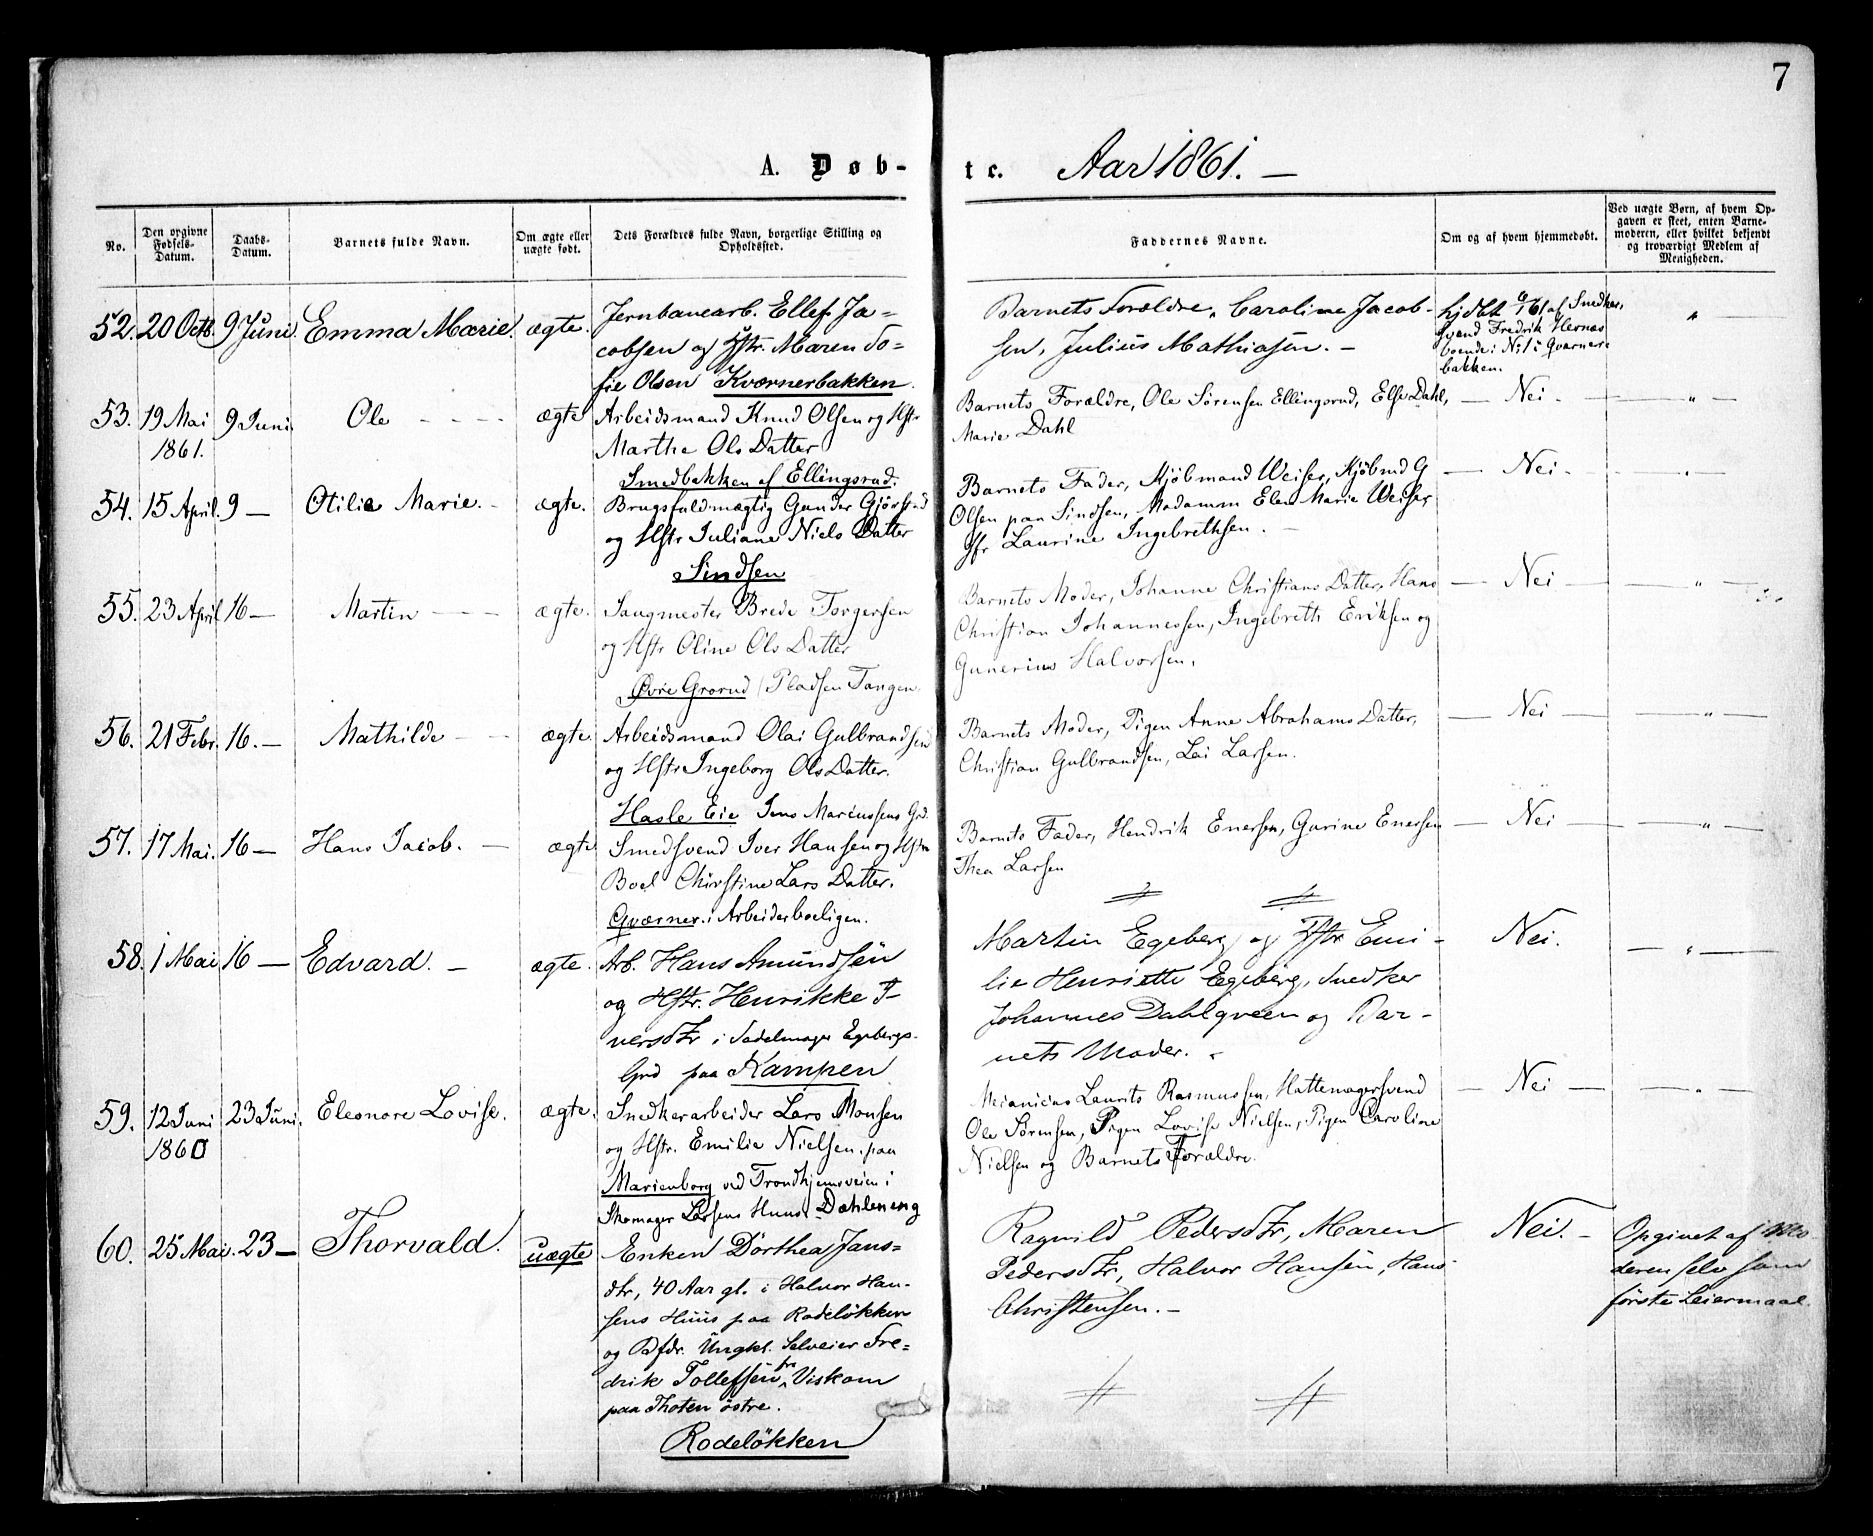 7
A. Døb-
te. Aar 1861. —
No.
Den opgivne
Fødsels-
Datum.
Daabs-
Datum.
Barnets fulde Navn.
Om ægte eller
uægte født.
Dets Forældres fulde Navn, borgerlige Stilling og
Opholdssted.
Faddernes Navne.
Om og af hvem hjemmedøbt.
Ved uægte Børn, af hvem Op-
gaven er skeet, enten Barne-
moderen, eller hvilket bekjendt
og troværdigt Medlem af
Menigheden.
52. 20 Octb. 9 Juni. Emma Marie. ægte. Jernbanearb. Ellef Ja-
cobsen og Hstr. Maren So-
fie Olsen Kværnerbakken.
Barnets Forældre, Caroline Jacob-
sen, Julius Mathiasen. —
hjdbt af Snedker,
svend Fredrik Hernæs
boende i No 1 i Qværner
bakken.
"
53. 19 Mai 9 Juni. Ole - - - - ægte Arbeidsmand Knud Olsen og Hstr
1861. Marthe Ols Datter
Smedbakken af Ellingsrud.
Barnets Forældre, Ole Sørensen Ellingsrud, Else Dahl,
Marie Dahl
— Nei. — " —
54. 15 April. 9 — Otilie Marie. - ægte. Brugsfuldmægtig Gunder Gjørsrud
og Hstr Juliane Niels Datter
Sindsen
Barnets Fader, Kjøbmand Weiser, Kjøbmd G
Olsen paa Sindsen, Madamm Elen Marie Weiser,
Jfr Laurine Ingebrethsen. —
— Nei. — " —
55. 23 April 16 — Martin - - - ægte. Sangmester Brede Torgersen
og Hstr Oline Ols Datter
Øvre Grorud / Pladsen Tangen
Barnets Moder, Johanne Christians Datter, Hans
Christian Johannessen, Ingebreth Eriksen og
Gunerius Halvorsen.
— Nei — " —
56. 21 Febr. 16. — Mathilde - - ægte. Arbeidsmand Olai Gulbrandsen
og Hstr Ingeborg Ols Datter.
Hasle Eie Jens Mariussens Grd.
Barnets Moder, Pigen Anne Abrahams Datter,
Christian Gulbrandsen, Lai Larsen.
— Nei — " —
57. 17 Mai. 16 — Hans Jacob. — ægte. Smedsvend Iver Hansen og Hstr
Boel Christine Lars Datter.
Qværner. i Arbeiderboeligen.
Barnets Fader, Hendrik Enersen, Gurine Enersen
Thea Larsen
— Nei — " —
58. 1 Mai 16 — Edvard. — ægte. Arb. Hans Amundsen
og Hstr. Henrikke I-
versdtr i Sadelmager Egebergs-
Grd paa Kampen
Martin Egeberg og Hstr Emi-
lie Henriette Egeberg, Snedker
Johannes Dahlqveen og Bar-
nets Moder. -
Nei. — " —
59. 12 Juni 23 Juni. Eleonore Lovise. ægte. Snedkerarbeider Lars Monsen
1860 og Hstr. Emilie Nielsen. paa
Marienborg ved Trondhjemsveien i
Skomager Larsens Huus. Dæhleneng
Mecanicus Laurits Rasmussen, Hattemagersvend
Ole Sørensen, Pigen Lovise Nielsen, Pigen Caroline
Nielsen og Barnets Forældre.
— Nei — " —
60. 25 Mai. 23 — Thorvald. uægte Enken Dorthea Jans-
dtr, 40 Aar gl. i Halvor Han-
sens Huus paa Rodeløkken
og Bfdr. Ungkl. Selveier Fre-
drik Tollefsen fra Viskom
paa Thoten østre.
Rodeløkken
Ragnild Pedersdtr, Maren
Pedersdtr, Halvor Hansen, Hans
Christensen. —
Nei. -
Opgivet af Mo
deren selv som
første Leiermaal.